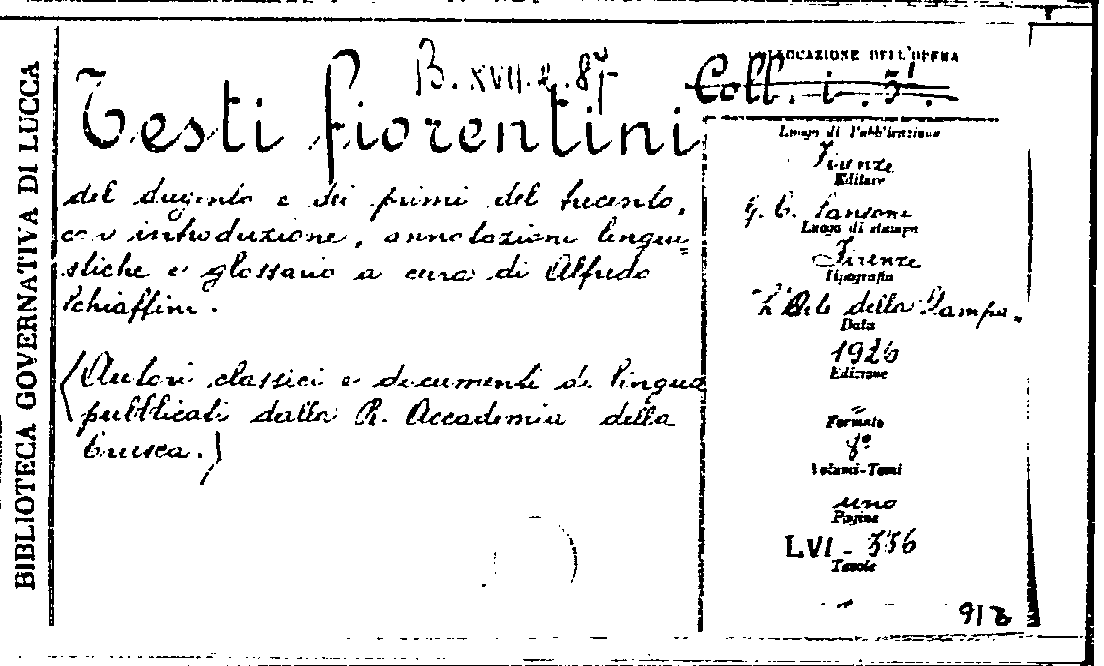 BIBLIOTECA GOVERNATIVA DI LUCCA
B. XVII. 2. 87
Testi fiorentini
del dugento e dei primi del trecento,
con introduzione, annotazioni lingui=
stiche e glossario a cura di Alfredo
Schiaffini.
(Autori classici e documenti di lingua
pubblicati dalla R. Accademia della
Crusca.)
COLLOCAZIONE DELL'OPERA
Coll. i. 5.
Luogo di Pubblicazione
Firenze
Editore
G. C. Sansoni
Luogo di stampa
Firenze
Tipografia
L'Arte della Stampa.
Data
1926
Edizione
Formato
8º
Volumi-Tomi
uno
Pagine
LVI - 336
Tavole